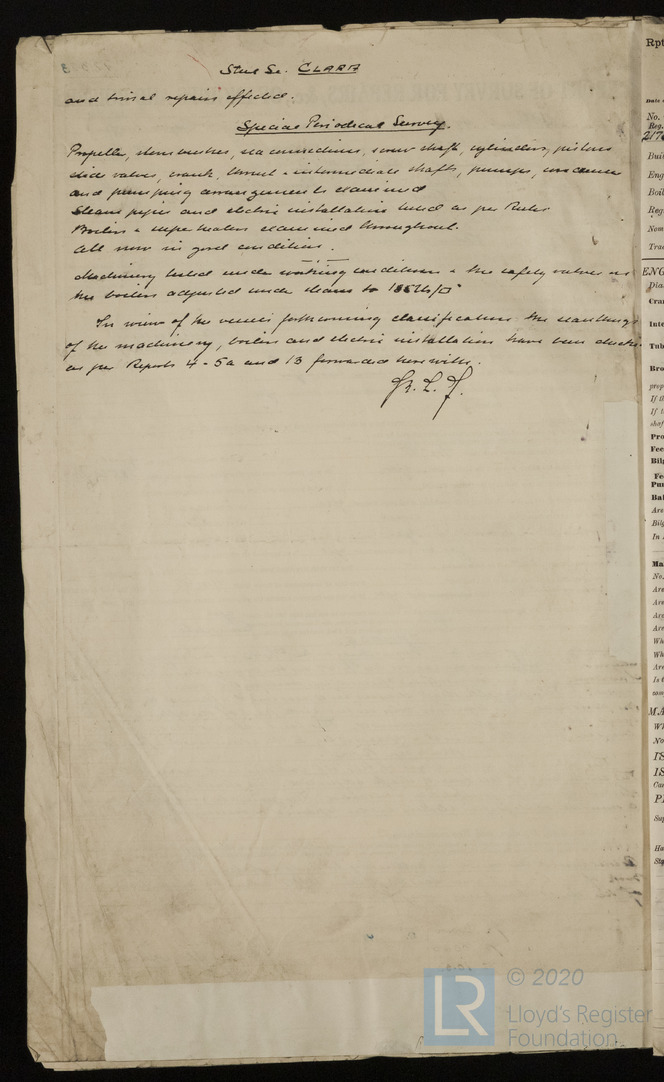 Stul Sc. CLARA
and trivial repairs effected.
Special Periodical Survey.
Propeller, stern bushes, sea connections, screw shaft, cylinders, pistons
slide valves, crank, thrust & intermediate shafts, pumps, condenser
and pumping arrangements examined
Steam pipes and electric installation tested as per Rules
Boilers & super heaters examined throughout.
All now in good condition.
Machinery tested under working conditions & the safety valves of
the boilers adjusted under steam to lb/□"
In view of the vessels forthcoming classification the scantlings
of the machinery, boilers and electric installation have been checked
as per Reports 4 - 5a and 13 forwarded herewith.
Rpt
No.
Reg.
Buil
Eng
Boil
Reg
Nom
Trac
ENG
Dia
Cran
Inte
Tub
Bro
prop
If th
If t
shaf
Pro
Fee
Bilg
Fe
Pum
Bal
Are
Bilg
In
Ma
No.
Are
Are
Asp
Are
Wh
Wh
Are
Is t
MA
Wh
No
IS
IS
Can
PI
Sup
Ha
Sta
LR
© 2020
Lloyd's Register
Foundation